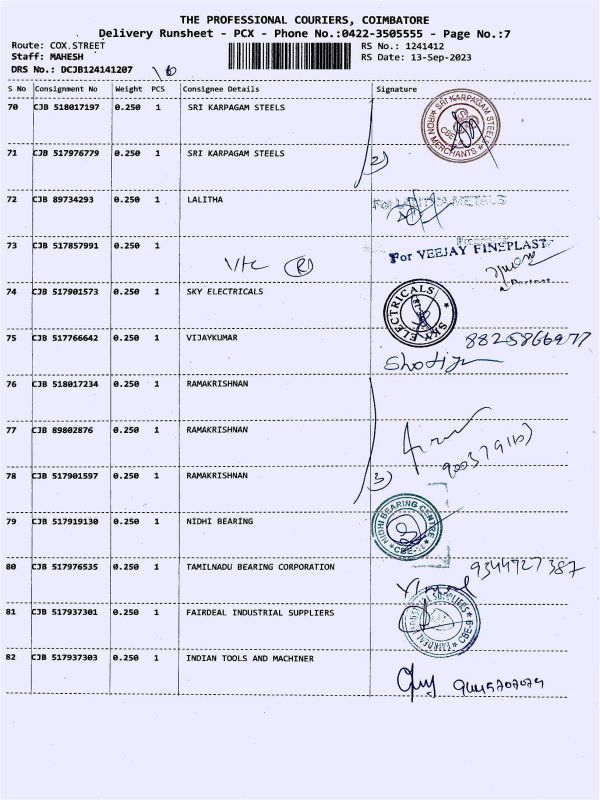 THE PROFESSIONAL COURIERS, COIMBATORE
Delivery Runsheet - PCX - Phone No.:0422-3505555 - Page No.:7
Route: COX.STREET RS No.: 1241412
Staff: MAHESH RS Date: 13-Sep-2023
DRS No.: DCJB124141207
S No Consignment No Weight PCS Consignee Details Signature
70 CJB 518017197 0.250 1 SRI KARPAGAM STEELS
SRI KARPAGAM STEELS IRON MERCHANTS CBE
71 CJB 517976779 0.250 1 SRI KARPAGAM STEELS
2)
72 CJB 89734293 0.250 1 LALITHA
For LALITHA METALS
73 CJB 517857991 0.250 1
For VEEJAY FINEPLAST
R
Partner
74 CJB 517901573 0.250 1 SKY ELECTRICALS
SKY ELECTRICALS
75 CJB 517766642 0.250 1 VIJAYKUMAR
76 CJB 518017234 0.250 1 RAMAKRISHNAN
77 CJB 89802876 0.250 1 RAMAKRISHNAN
78 CJB 517901597 0.250 1 RAMAKRISHNAN
3)
79 CJB 517919130 0.250 1 NIDHI BEARING
NIDHI BEARING CENTRE
80 CJB 517976535 0.250 1 TAMILNADU BEARING CORPORATION
9344727387
81 CJB 517937301 0.250 1 FAIRDEAL INDUSTRIAL SUPPLIERS
82 CJB 517937303 0.250 1 INDIAN TOOLS AND MACHINER